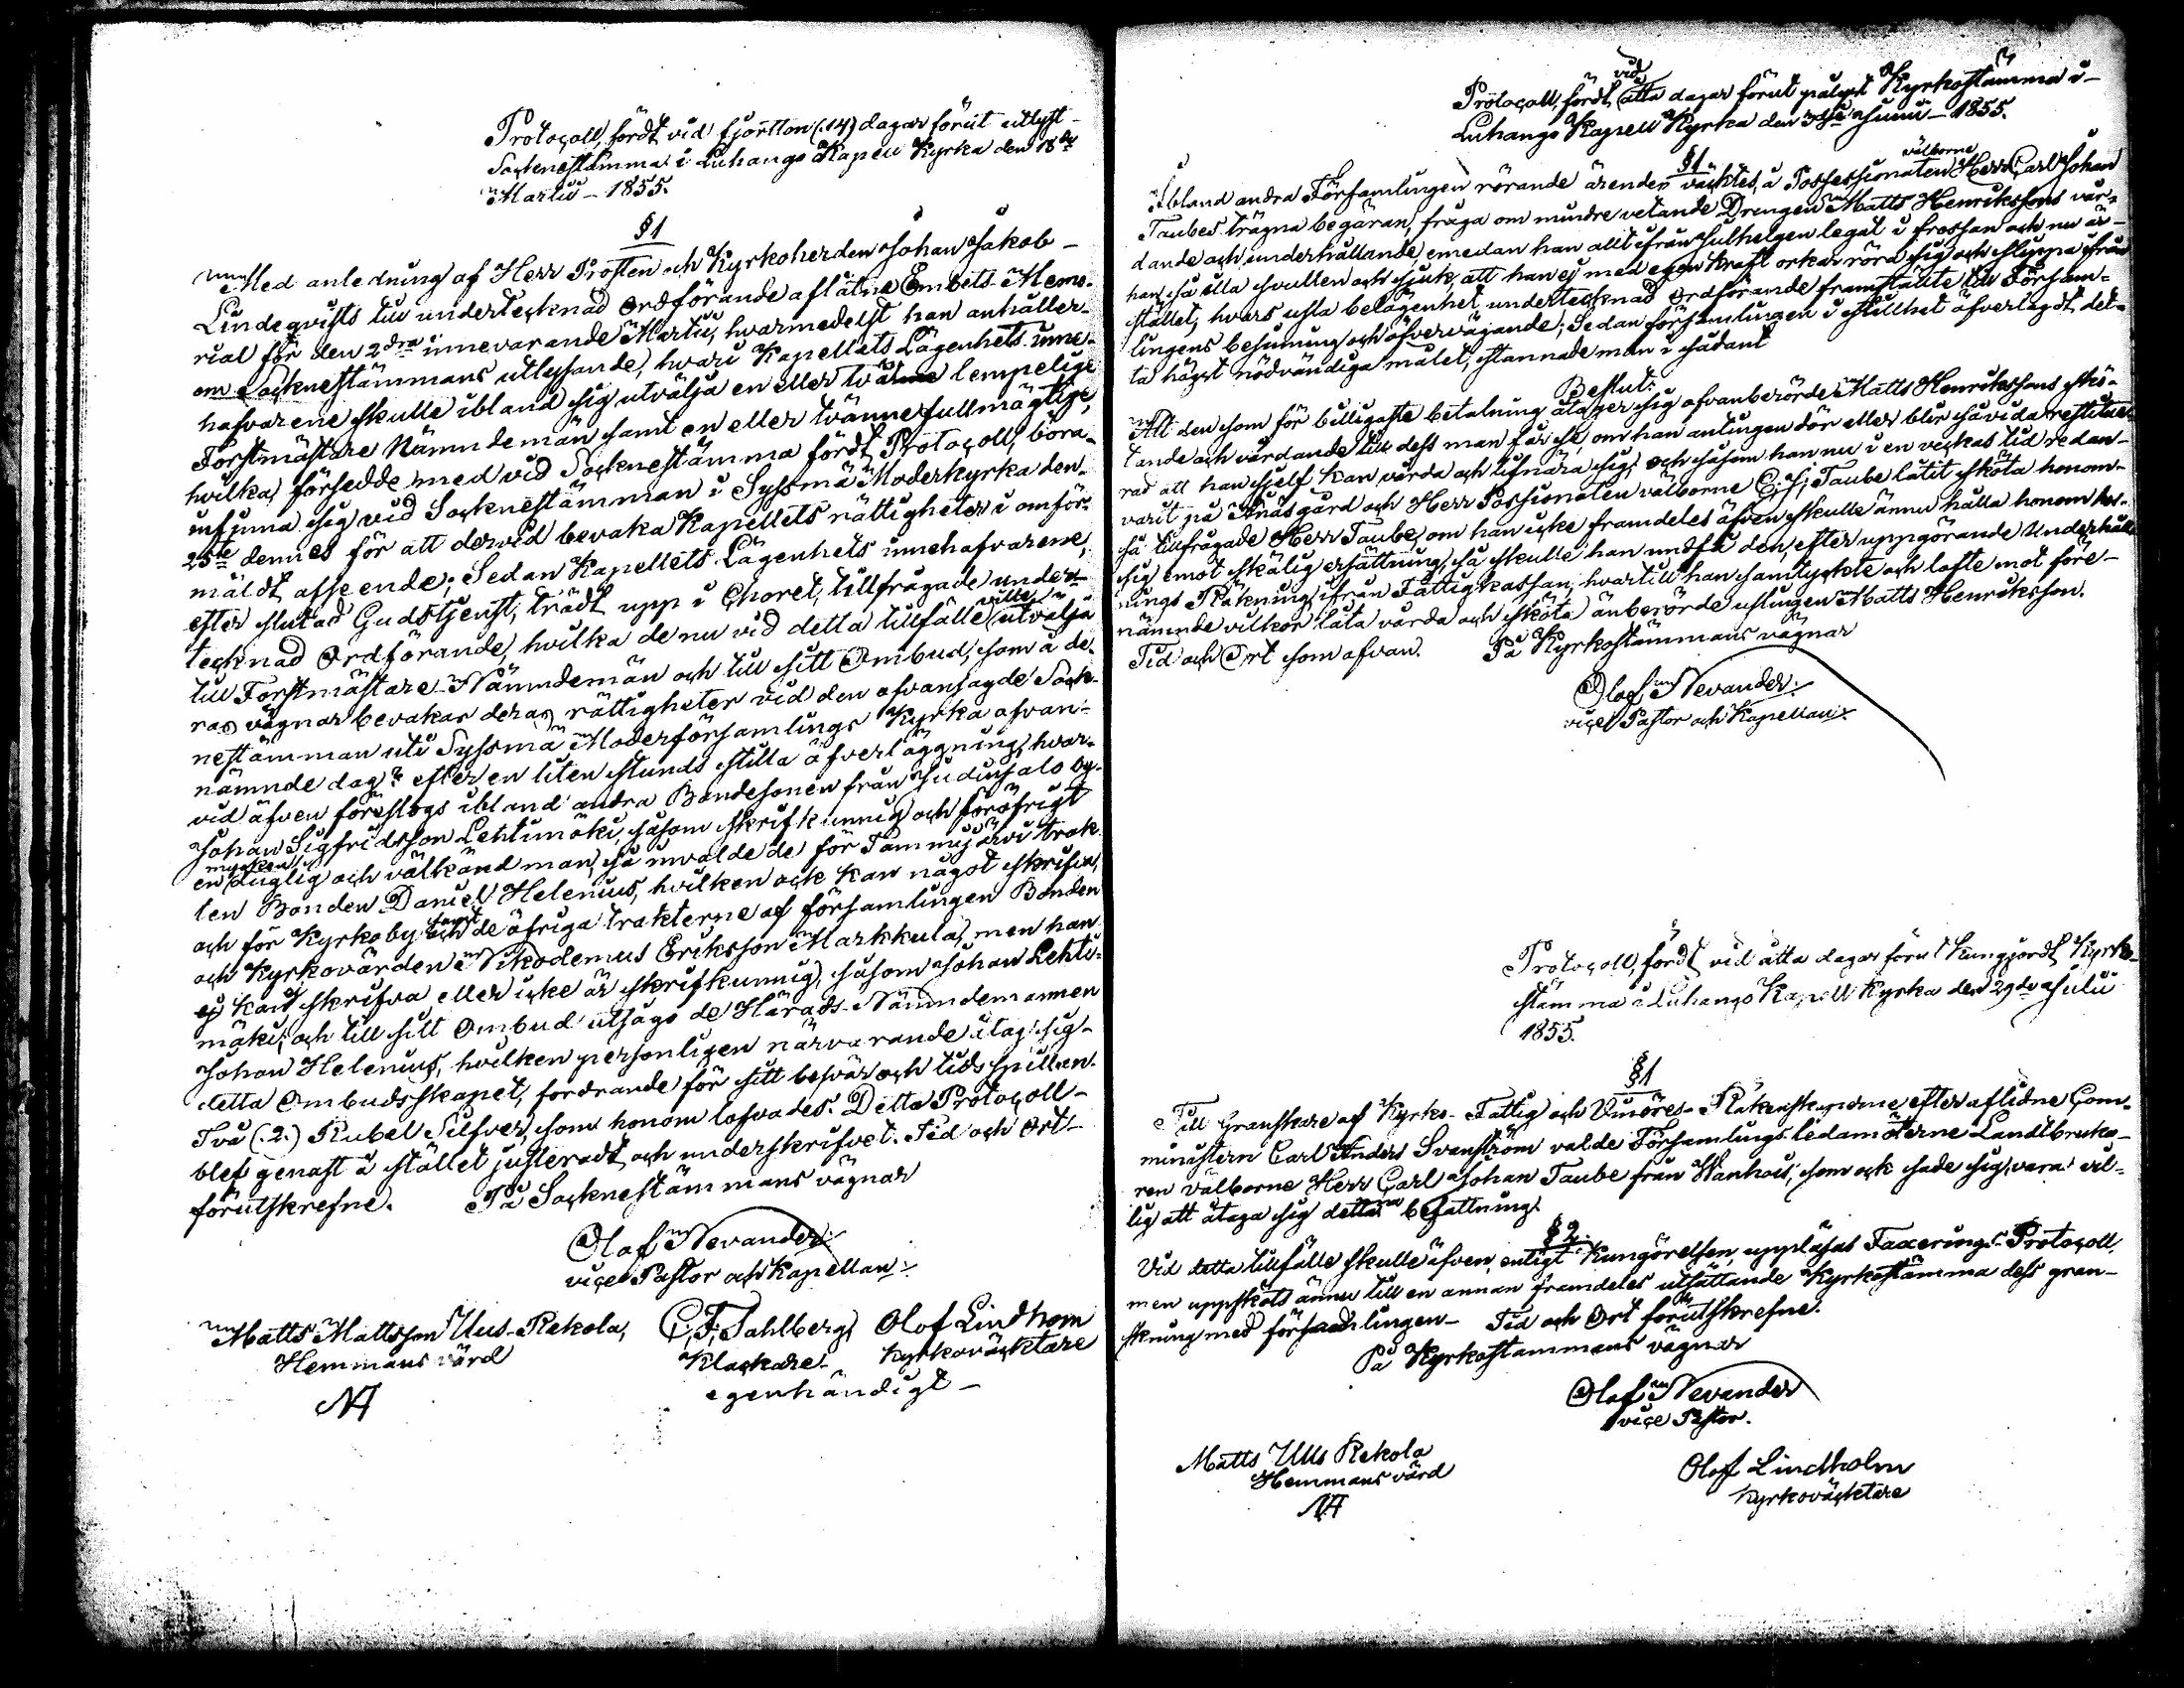 Protocoll, fördt vid fjortton (.14) dagar förut utlyst
Socknestämma i Luhango Kapell Kyrka den 18de
Martii - 1855.
§ 1
Med anledning af Herr Prosten och Kyrkoherden Johan Jakob
Lindeqvists till undertecknad Ordförande aflåtne Embets-Memo-
rial för den 2dra innevarande Martii, hvarmedelst han anhåller
om Socknestämmans utlysande, hvari Kapellets Lägenhets inne-
hafvarene skulle ibland sig utvälja en eller tvänne lempelige
Forstmästare Nämndemän samt en eller tvänne fullmägtige,
hvilka, försedde med vid Socknestämma fördt Protocoll, böra
infinna sig vid Socknestämman i Syssmä Moderkyrka den
25te dennes för att dervid bevaka Kapellets rättigheter i omför-
mäldt afseende; Sedan Kapellets Lägenhets innehafvarene,
efter slutad Gudstjenst, trädt upp i Choret, tillfrågade under-
tecknad Ordförande, hvilka de nu vid detta tillfälle ville utvälja
till Forstmästare-Nämndemän och till sitt Ombud, som å de-
ras vägnar bevakar deras rättigheter vid den ofvansagde Sock-
nestämman uti Syssmä Moderförsamlings Kyrka ofvan-
nämnde dag? efter en liten stunds stilla öfverläggning, hvar-
vid äfven föreslogs ibland andra Bondesonen från Judinsalo by
Johan Sigfridsson Lehtimäki, såsom skrifkunnig ochföröfrigt
en mycken duglig och välkänd man, så invalde de för Tammijärvi trak-
ten Bonden Daniel Helenius, hvilken ock kan något skrifva,
och för Kyrkoby samt de öfriga trakterne af församlingen Bonden
och Kyrkovärden Nikodemus Eriksson Markkula, men han
ej kan skrifva eller icke är skrifkunnig, såsom Johan Lehti-
mäki; och till sitt Ombud utsågo de Härads-Nämndemannen
Johan Helenius, hvilken personligen närvarande åtog sig
detta Ombudsskapet, fordrande för sitt besvär och tids spillan
Två (.2.) Rubel Silfver, som honom lofvades. Detta Protocoll
blef genast å stället justeradt och underskrifvet. Tid och Ort
förutskrefne. På Socknestämmans vägnar
Olof Nevander
vice Pastor och Kapellan
Matts Mattsson Uus-Rekola, C. F. Sahlberg, Olof Lindhom
Hemmans värd Klockare Kyrkoväcktare
egenhändigt
Protocoll, fördt vid åtta dagar förut pålyst Kyrkostämma i
Luhango Kapell Kyrka den 3dje Junii - 1855.
§ 1
Ibland andra Församlingen rörande ärenden väcktes, å Possessionaten välborne Herr Carl Johan
Taubes trägna begäran, fråga om mindre vetande Drengen Matts Henrikssons vår-
dande och underhållande, emedan han allt ifrån Julhelgen legat i frossan och nu är
han så illa svullen och sjuk, att han ej med egen kraft orkar röra sig och slippa ifrån
stället, hvars usla belägenhet undertecknad Ordförande framställte till Försam-
lingens besinning och öfvervägande; Sedan församlingen i stillhet öfverlagdt det-
ta högst nödvändiga målet, stannade man i sådant
Beslut:
Att den som för billigaste betalning åtager sig ofvanberörde Matts Henrikssons skö-
tande och vårdande till dess man får se, om han antingen dör eller blir såvida restitue-
rad att han sjelf kan vårda och lifnära sig, och såsom han nu i en veckas tid redan
varit på gård och Herr Possionaten välborne C. J. Taube låtit sköta honom
så tillfrågade Herr Taube, om han icke framdeles äfven skulle ännu hålla honom hos
sig emot skälig ersättning, så skulle han undfå den, efter uppgörande Underhåll-
nings Räkning, ifrån Fattigkassan, hvartill han samtyckte och lofte mot före-
nämnde vilkor låta vårda och sköta anberörde uslingen Matts Henriksson.
Tid och Ort som ofvan. På Kyrkostämmans vägnar
Olof Nevander
vice Pastor och Kapellan
Protocoll, fördt vid åtta dagar förut kungjordt Kyrko-
stämma i Luhango Kapell Kyrka den 29de Julii
1855.
§ 1
Till Granskare af Kyrko- Fattig och Räkenskaperne efter aflidne Com-
ministern Carl Anders Svanström valde Församlings ledamöterne Landtbruka-
ren välborne Herr Carl Johan Taube från Wanhais, som ock sade sig vara vil-
lig att åtaga sig denna befattning.
§ 2.
Vid detta tillfälle skulle äfven, enligt Kungörelsen, uppläsas Taxerings-Protocoll,
men uppsköts ännu till en annan framdeles utsättande Kyrkostämma dess gran-
skning med församlingen. Tid och Ort förutskrefne.
På Kyrkostämmans vägnar
Olof Nevander
vice Pastor.
Matts Uus Rekola Olof Lindholm
Hemmans värd Kyrkoväcktare